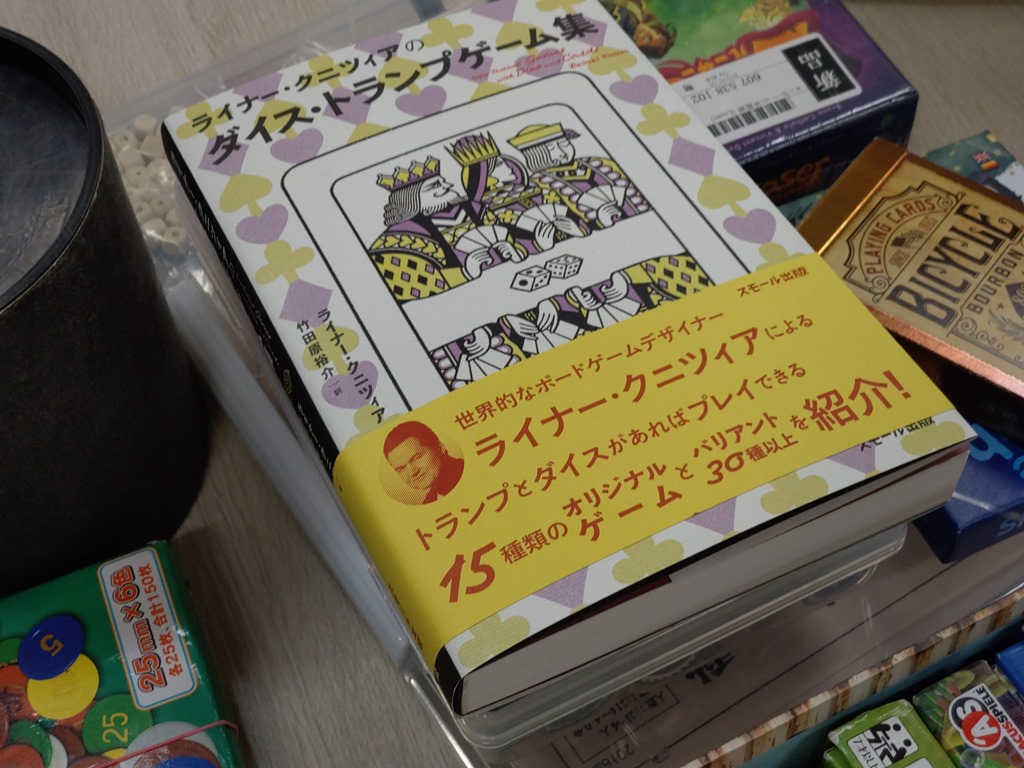 ライナー・クニツィアの
ダイス・トランプゲーム集
ライナー・クニツィア
竹田原裕介 訳
スモール出版
世界的なボードゲームデザイナー
ライナー・クニツィアによる
トランプとダイスがあればプレイできる
15種類のオリジナルゲームとバリアント30種以上を紹介!
スモール出版
新品
607 538 102
PLAYING CARDS
BICYCLE
BOURBON
25mm×6色
各25枚 合計150枚
5
25